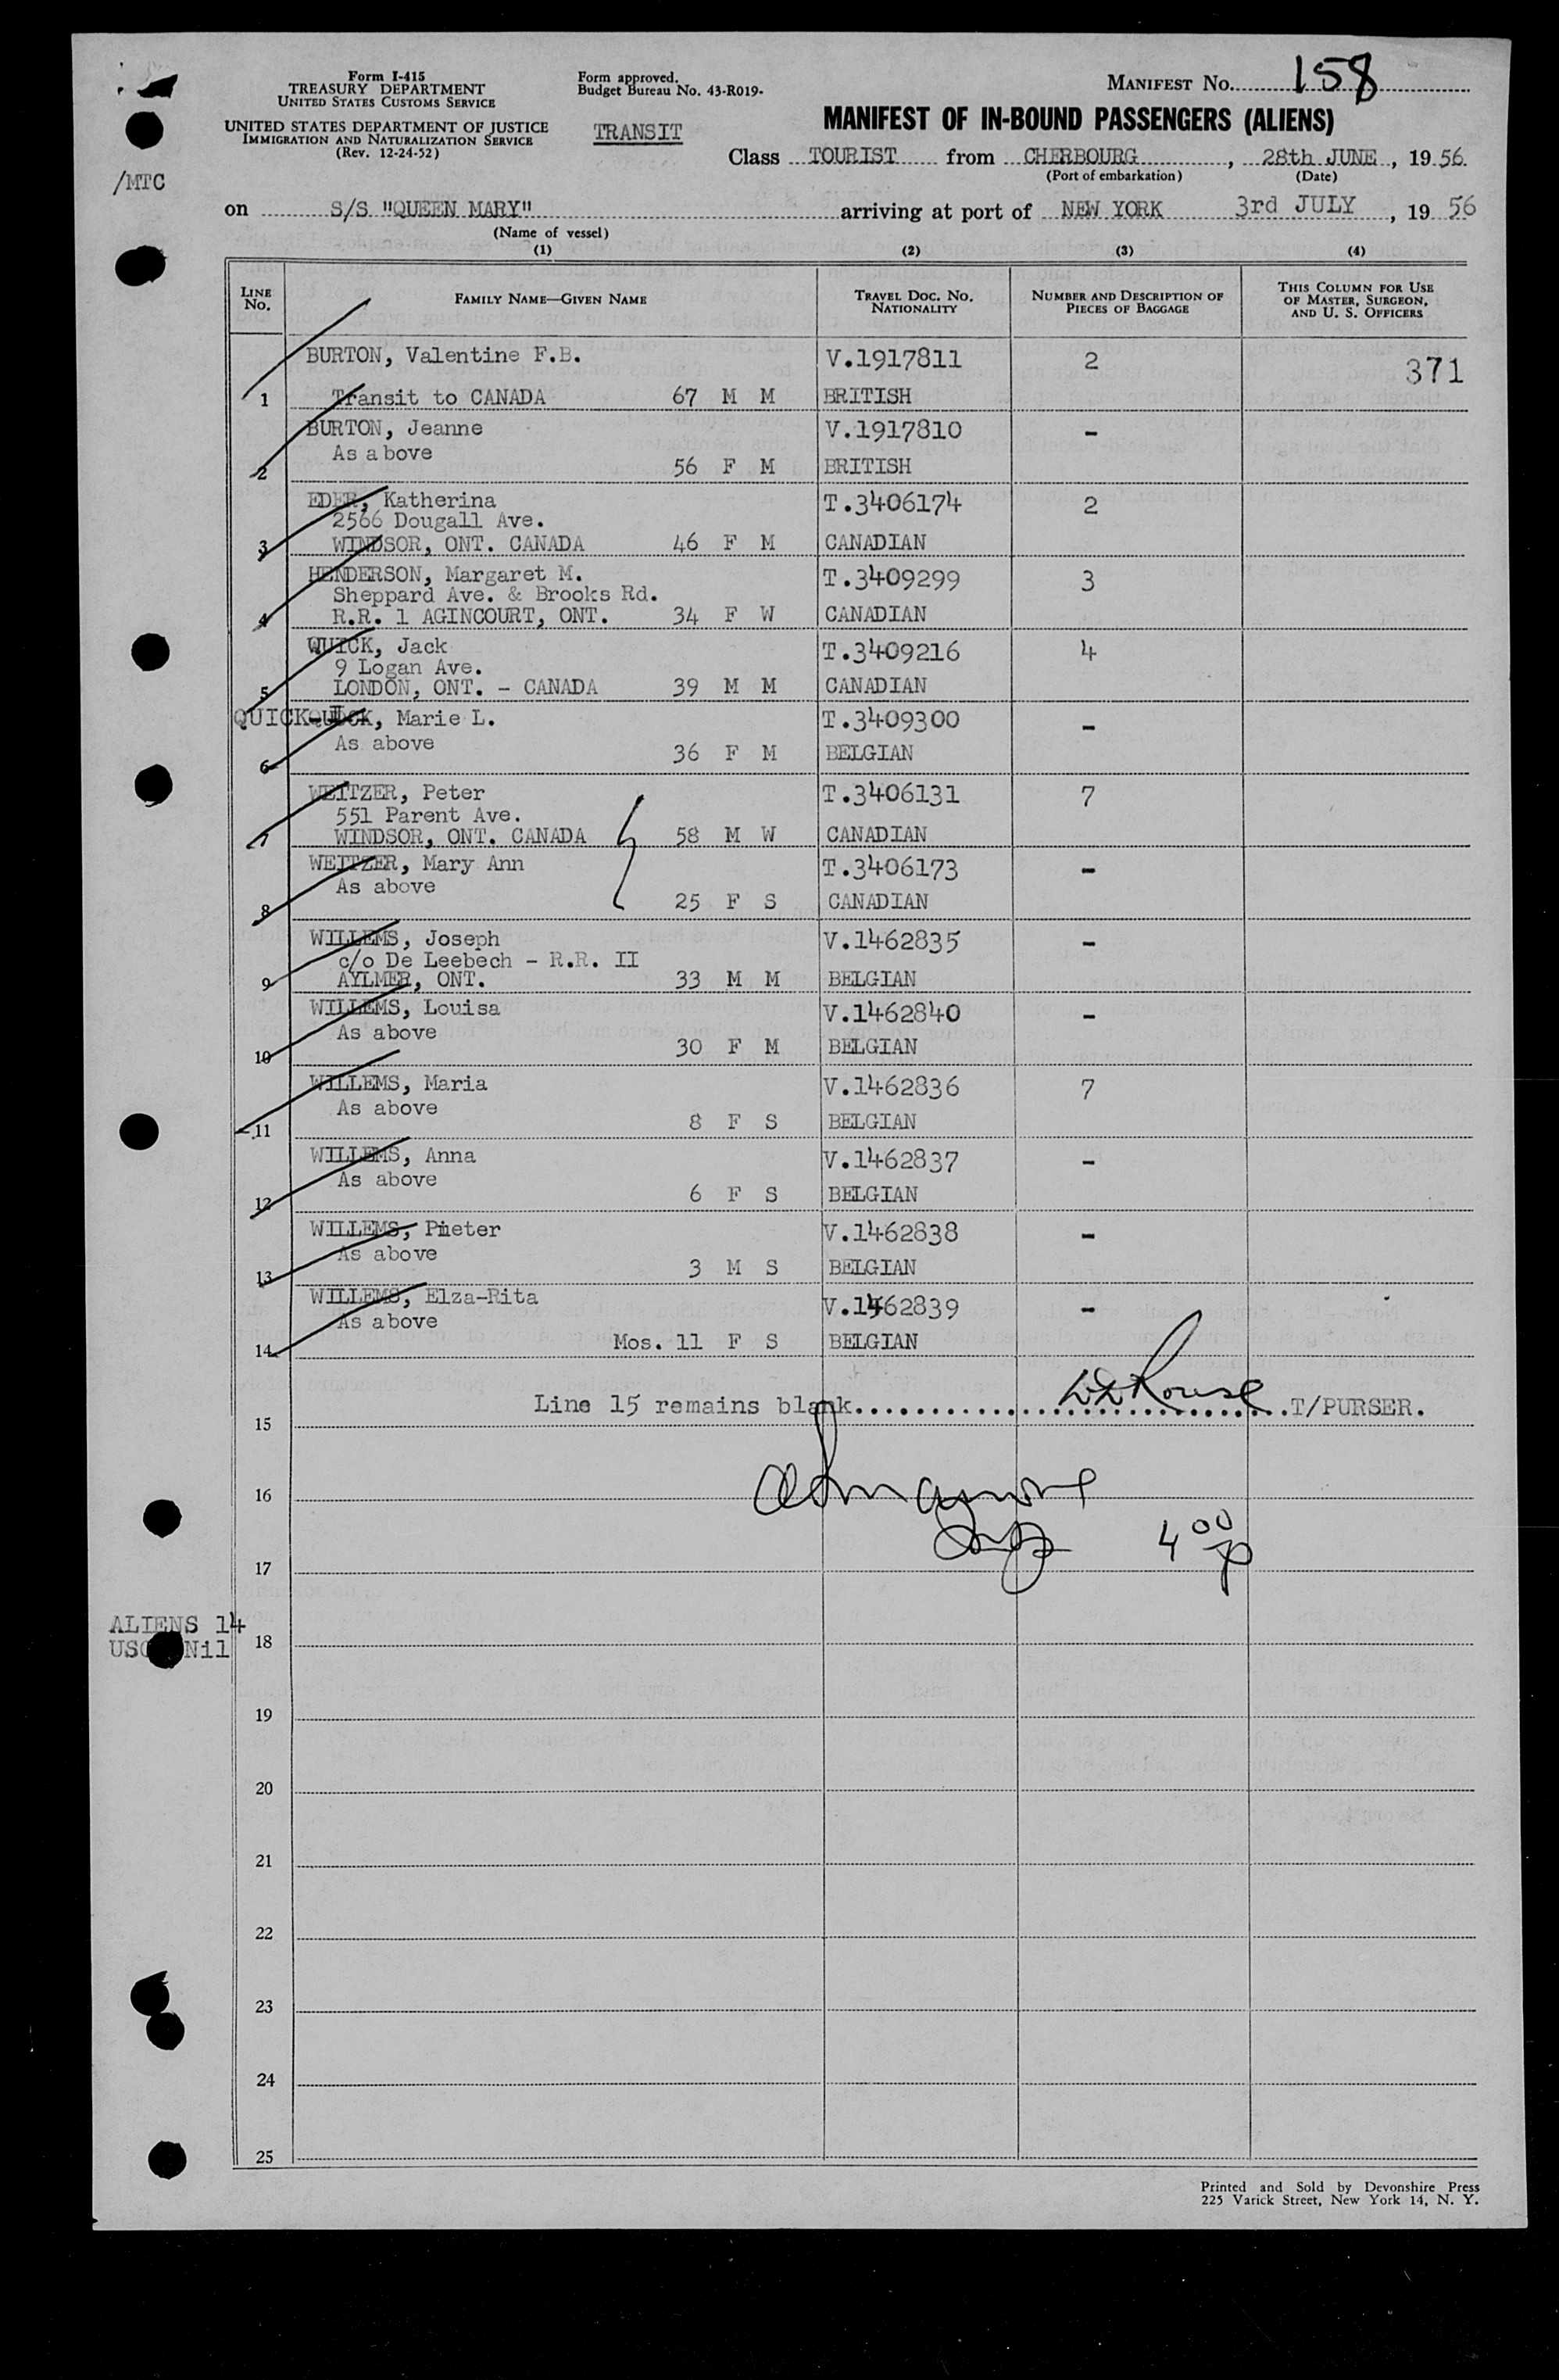 Form I-415
TREASURY DEPARTMENT
UNITED STATES CUSTOMS SERVICE
UNITED STATES DEPARTMENT OF JUSTICE
IMMIGRATION AND NATURALIZATION SERVICE
(Rev. 12-24-52)
/MTC
Form approved.
Budget Bureau No. 43-R019-
TRANSIT
MANIFEST No. 158
MANIFEST OF IN-BOUND PASSENGERS (ALIENS)
Class TOURIST from CHERBOURG, 28th JUNE, 19 56
(Port of embarkation) (Date)
on S/S "QUEEN MARY" arriving at port of NEW YORK 3rd JULY, 19 56
(Name of vessel)
(1) (2) (3) (4)
LINE No. FAMILY NAME—GIVEN NAME TRAVEL DOC. No. NATIONALITY NUMBER AND DESCRIPTION OF PIECES OF BAGGAGE THIS COLUMN FOR USE OF MASTER, SURGEON, AND U. S. OFFICERS
BURTON, Valentine F.B. V.1917811 2 371
1 Transit to CANADA 67 M M BRITISH
BURTON, Jeanne V.1917810 -
As above
2 56 F M BRITISH
EDER, Katherina T.3406174 2
2566 Dougall Ave.
3 WINDSOR, ONT. CANADA 46 F M CANADIAN
HENDERSON, Margaret M. T.3409299 3
Sheppard Ave. & Brooks Rd.
4 R.R. 1 AGINCOURT, ONT. 34 F W CANADIAN
QUICK, Jack T.3409216 4
9 Logan Ave.
5 LONDON, ONT. - CANADA 39 M M CANADIAN
QUICK-QUICK, Marie L. T.3409300 -
As above
6 36 F M BELGIAN
WEITZER, Peter T.3406131 7
551 Parent Ave.
7 WINDSOR, ONT. CANADA 58 M W CANADIAN
WEITZER, Mary Ann T.3406173 -
As above
8 25 F S CANADIAN
WILLEMS, Joseph V.1462835 -
c/o De Leebech - R.R. II
9 AYLMER, ONT. 33 M M BELGIAN
WILLEMS, Louisa V.1462840 -
As above
10 30 F M BELGIAN
WILLEMS, Maria V.1462836 7
As above
11 8 F S BELGIAN
WILLEMS, Anna V.1462837 -
As above
12 6 F S BELGIAN
WILLEMS, Pieter V.1462838 -
As above
13 3 M S BELGIAN
WILLEMS, Elza-Rita V.1462839 -
As above
14 Mos. 11 F S BELGIAN
Line 15 remains blank Rouse T/PURSER.
15
16
4 00
17
ALIENS 14
USC Nil
18
19
20
21
22
23
24
25
Printed and Sold by Devonshire Press
225 Varick Street, New York 14, N. Y.